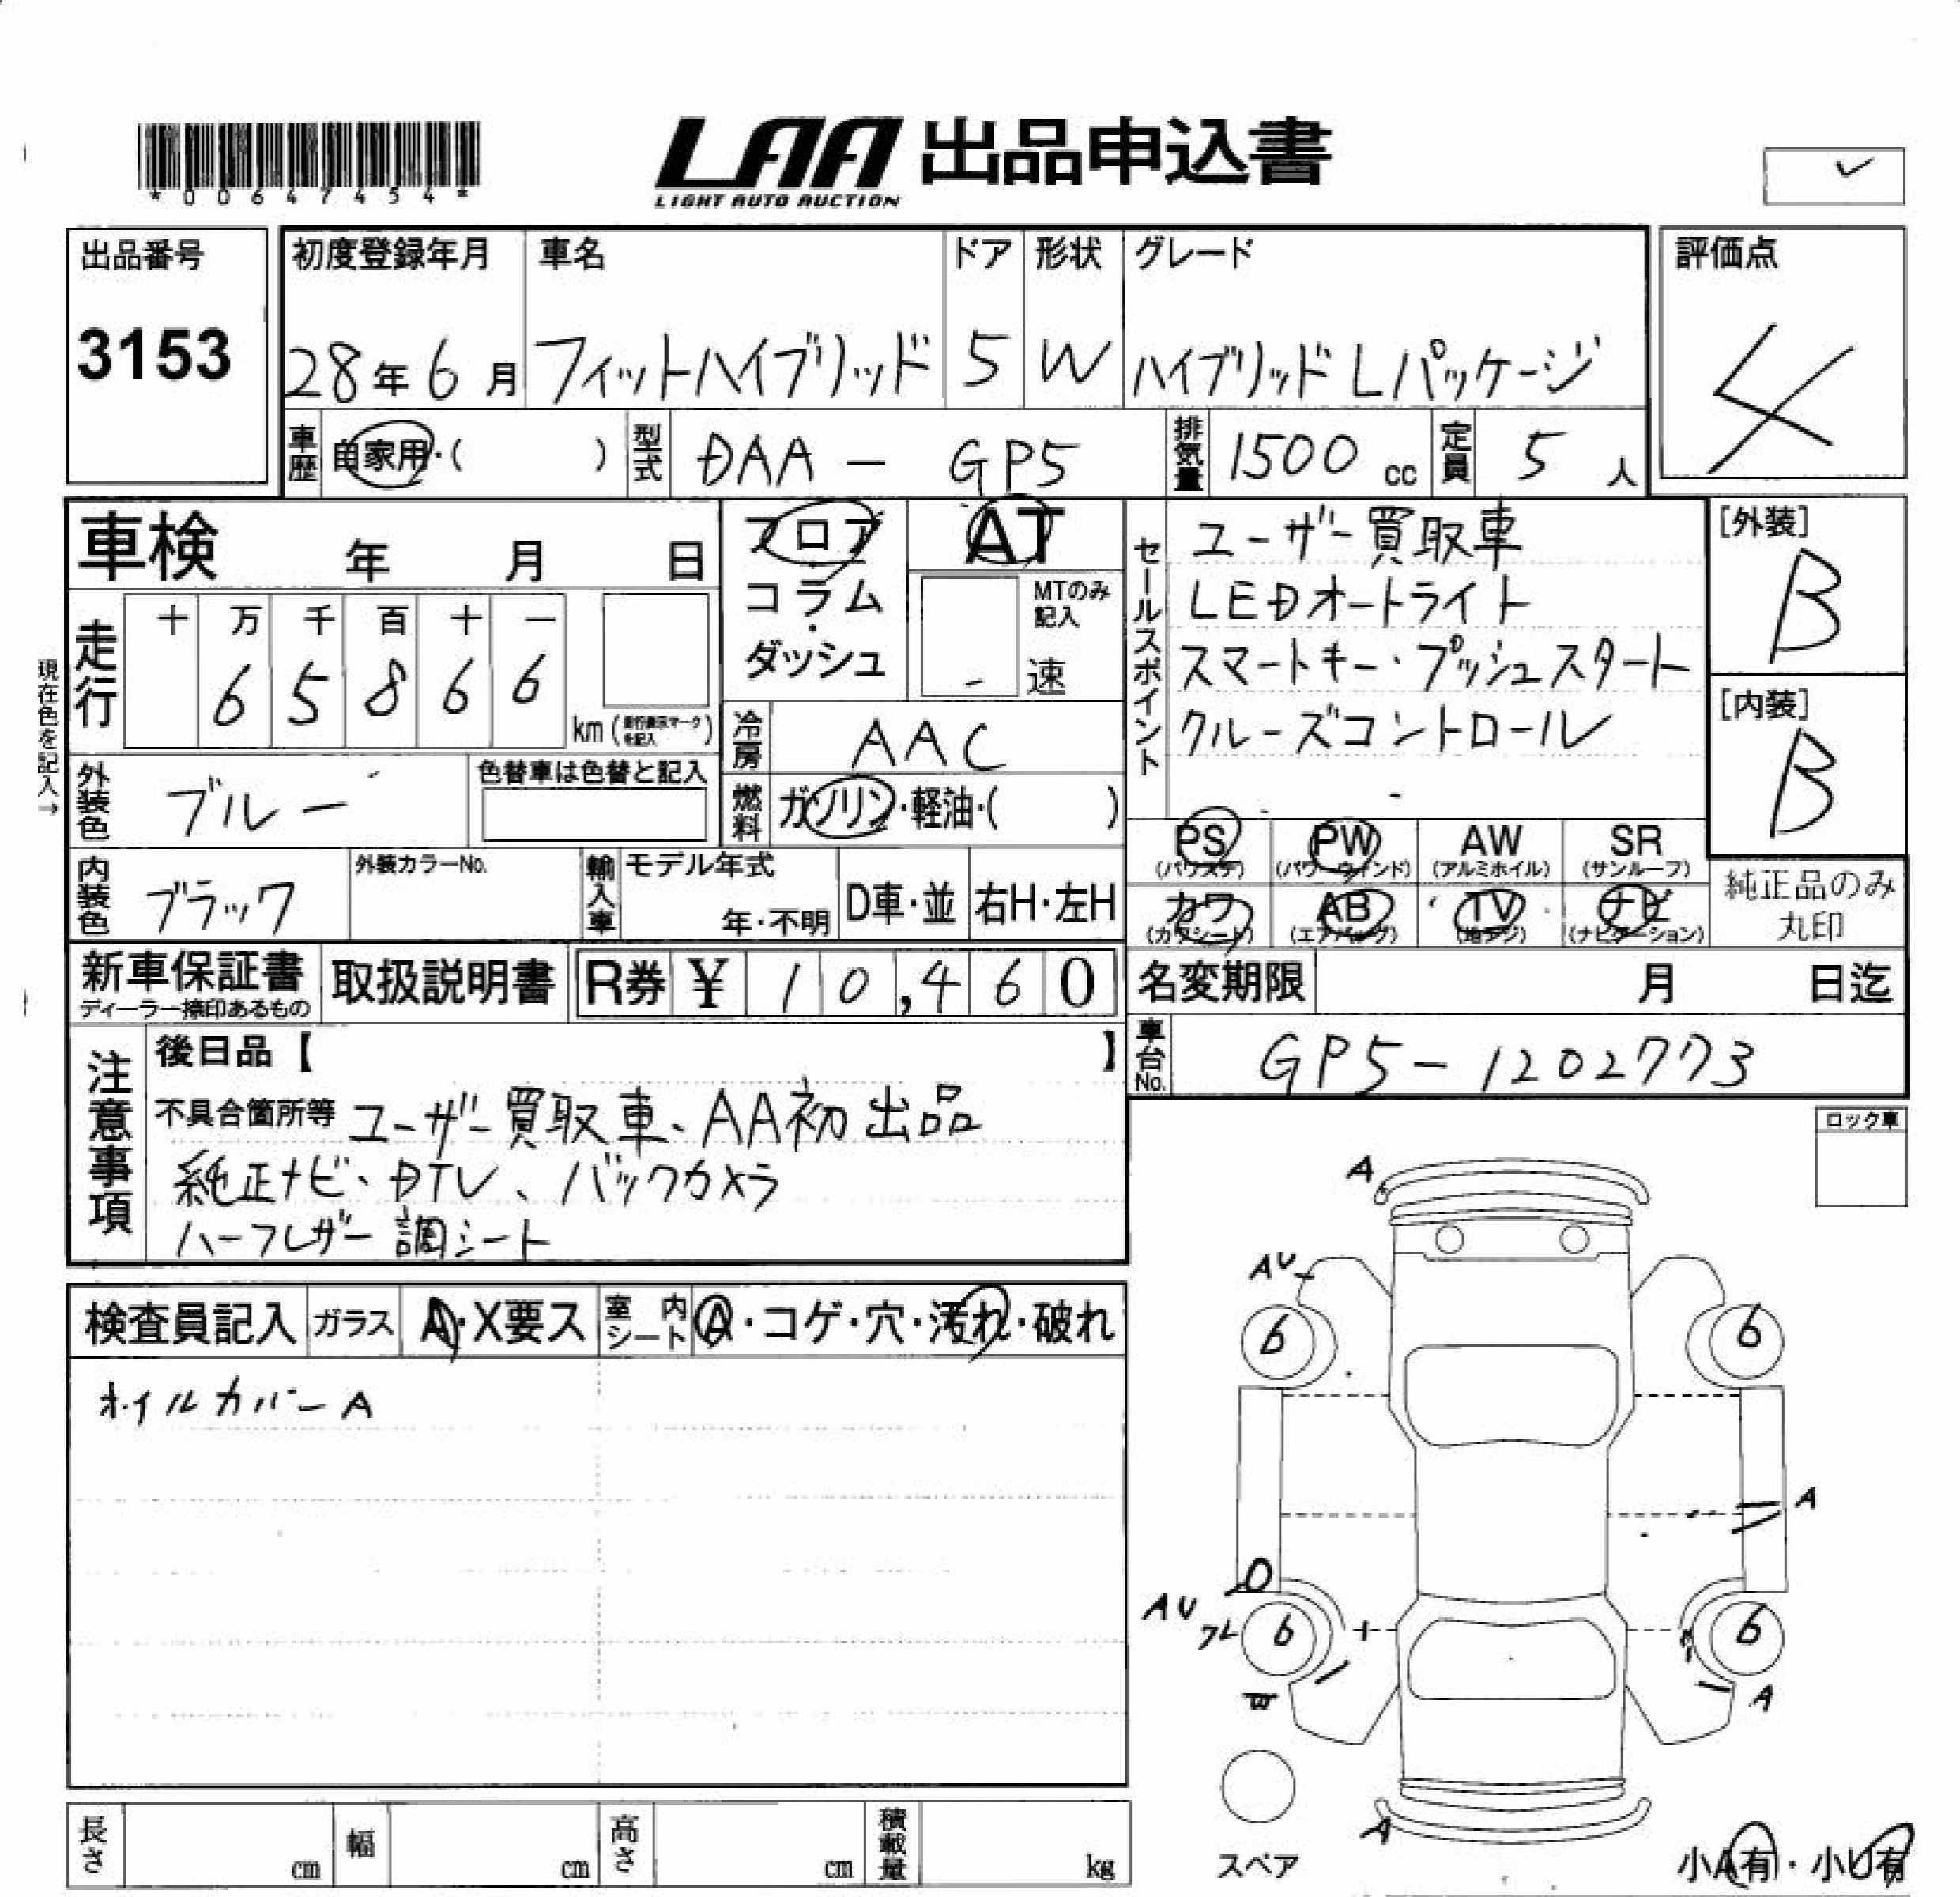 *00647454*
LAA 出品申込書
LIGHT AUTO AUCTION
出品番号 初度登録年月 車名 ドア 形状 グレード 評価点
3153 28年6月 フィットハイブリッド 5 W ハイブリッドLパッケージ 4
車歴 自家用・( ) 型式 DAA - GP5 排気量 1500 cc 定員 5 人
車検 年 月 日
フロア・コラム・ダッシュ
AT
MTのみ記入
- 速
セールスポイント
ユーザー買取車
LEDオートライト
スマートキー・プッシュスタート
クルーズコントロール
[外装]
B
[内装]
B
現在色を記入→
走行 十 万 千 百 十 一
6 5 8 6 6 km(走行表示マークを記入)
冷房 AAC
外装色 ブルー 色替車は色替と記入
燃料 ガソリン・軽油・( )
PS PW AW SR
(パワステ) (パワーウィンド) (アルミホイル) (サンルーフ)
カワ AB TV ナビ
(カワシート) (エアバック) (地デジ) (ナビゲーション)
純正品のみ
丸印
内装色 ブラック 外装カラーNo. 輸入車 モデル年式 年・不明 D車・並 右H・左H
新車保証書 取扱説明書 R券 ¥ 10,460 名変期限 月 日迄
ディーラー捺印あるもの
車台No. GP5-1202773
注意事項
後日品【 】
不具合箇所等 ユーザー買取車、AA初出品
純正ナビ、DTV、バックカメラ
ハーフレザー調シート
ロック車
検査員記入 ガラス A・X要ス 室内シート A・コゲ・穴・汚れ・破れ
ホイルカバーA
A
AU
6 6
A
AU
フレ 6 6
W A
A
スペア
小A有・小U有
長さ cm 幅 cm 高さ cm 積載量 kg